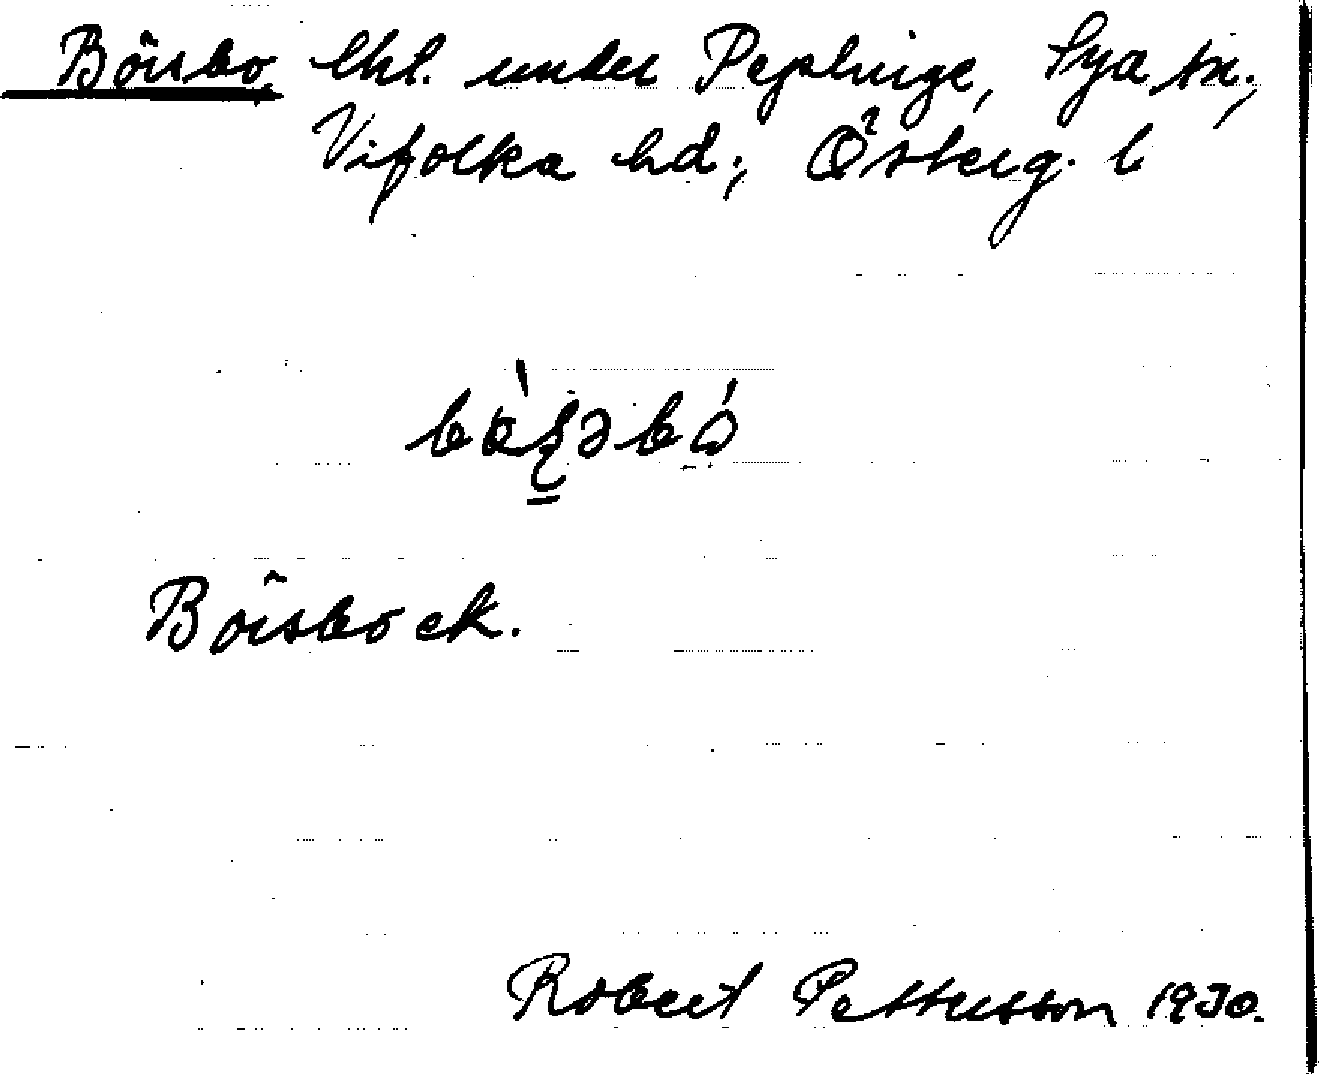 Börsbo, lht. under Peplinge, Sya sn.,
Vifolka hd., Österg. l
Börsbo ek.
Robert Pettersson 1930.